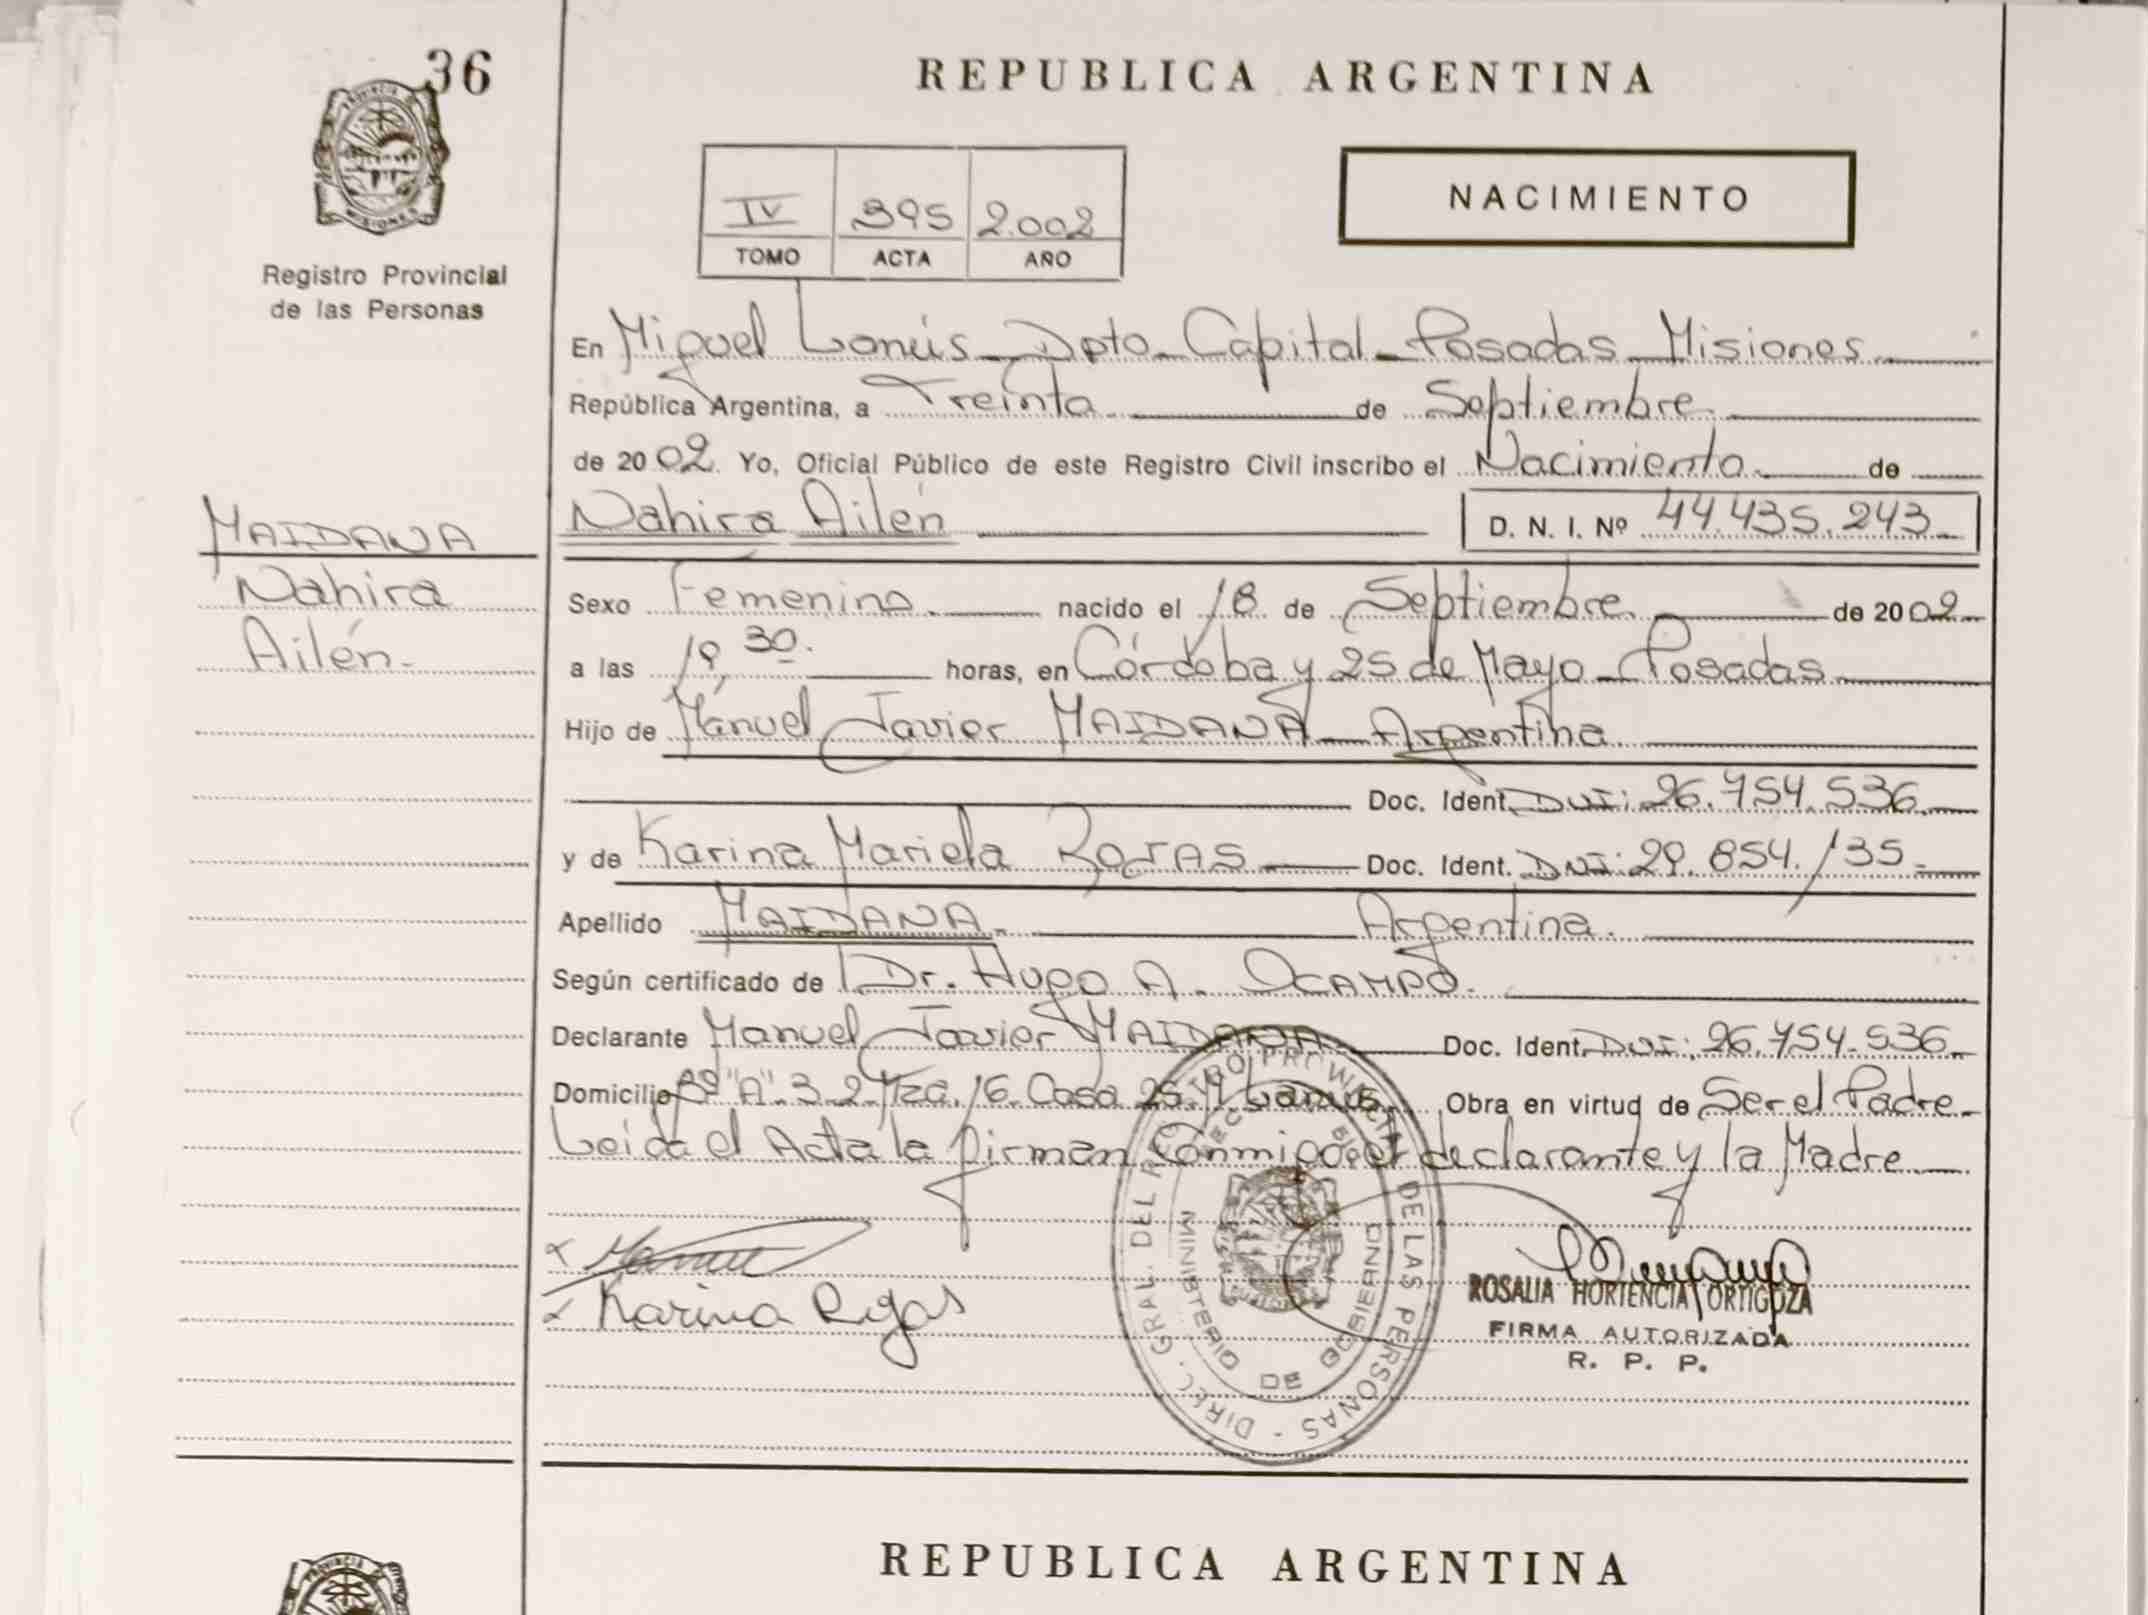 36
REPUBLICA ARGENTINA
PROVINCIA DE
MISIONES
Registro Provincial
de las Personas
IV 395 2.002
TOMO ACTA AÑO
NACIMIENTO
En Miguel Lanús - Dpto. Capital - Posadas - Misiones
República Argentina, a Treinta de Septiembre
de 2002. Yo, Oficial Público de este Registro Civil inscribo el Nacimiento de
Nahira Ailén D. N. I. Nº 44.435.243
MAIDANA
Nahira
Ailén.
Sexo Femenino. nacido el 18 de Septiembre. de 2002
a las 19,30. horas, en Córdoba y 25 de Mayo - Posadas
Hijo de Manuel Javier MAIDANA - Argentina
Doc. Ident. DNI: 26.754.536
y de Karina Mariela ROJAS Doc. Ident. DNI: 29.854.135
Apellido MAIDANA. Argentina.
Según certificado de Dr. Hugo A. OCAMPO.
Declarante Manuel Javier MAIDANA Doc. Ident. DNI: 26.754.536
Domicilio "A" 3 2 Mza. 16. Casa 25. M Lanús. Obra en virtud de Ser el Padre
Leída el Acta la firman Conmigo el declarante y la Madre
Manuel
Karina Rojas
DIREC. GRAL. DEL REGISTRO PROVINCIAL DE LAS PERSONAS
MINISTERIO DE GOBIERNO
ROSALIA HORTENCIA ORTIGOZA
FIRMA AUTORIZADA
R. P. P.
REPUBLICA ARGENTINA
PROVINCIA DE